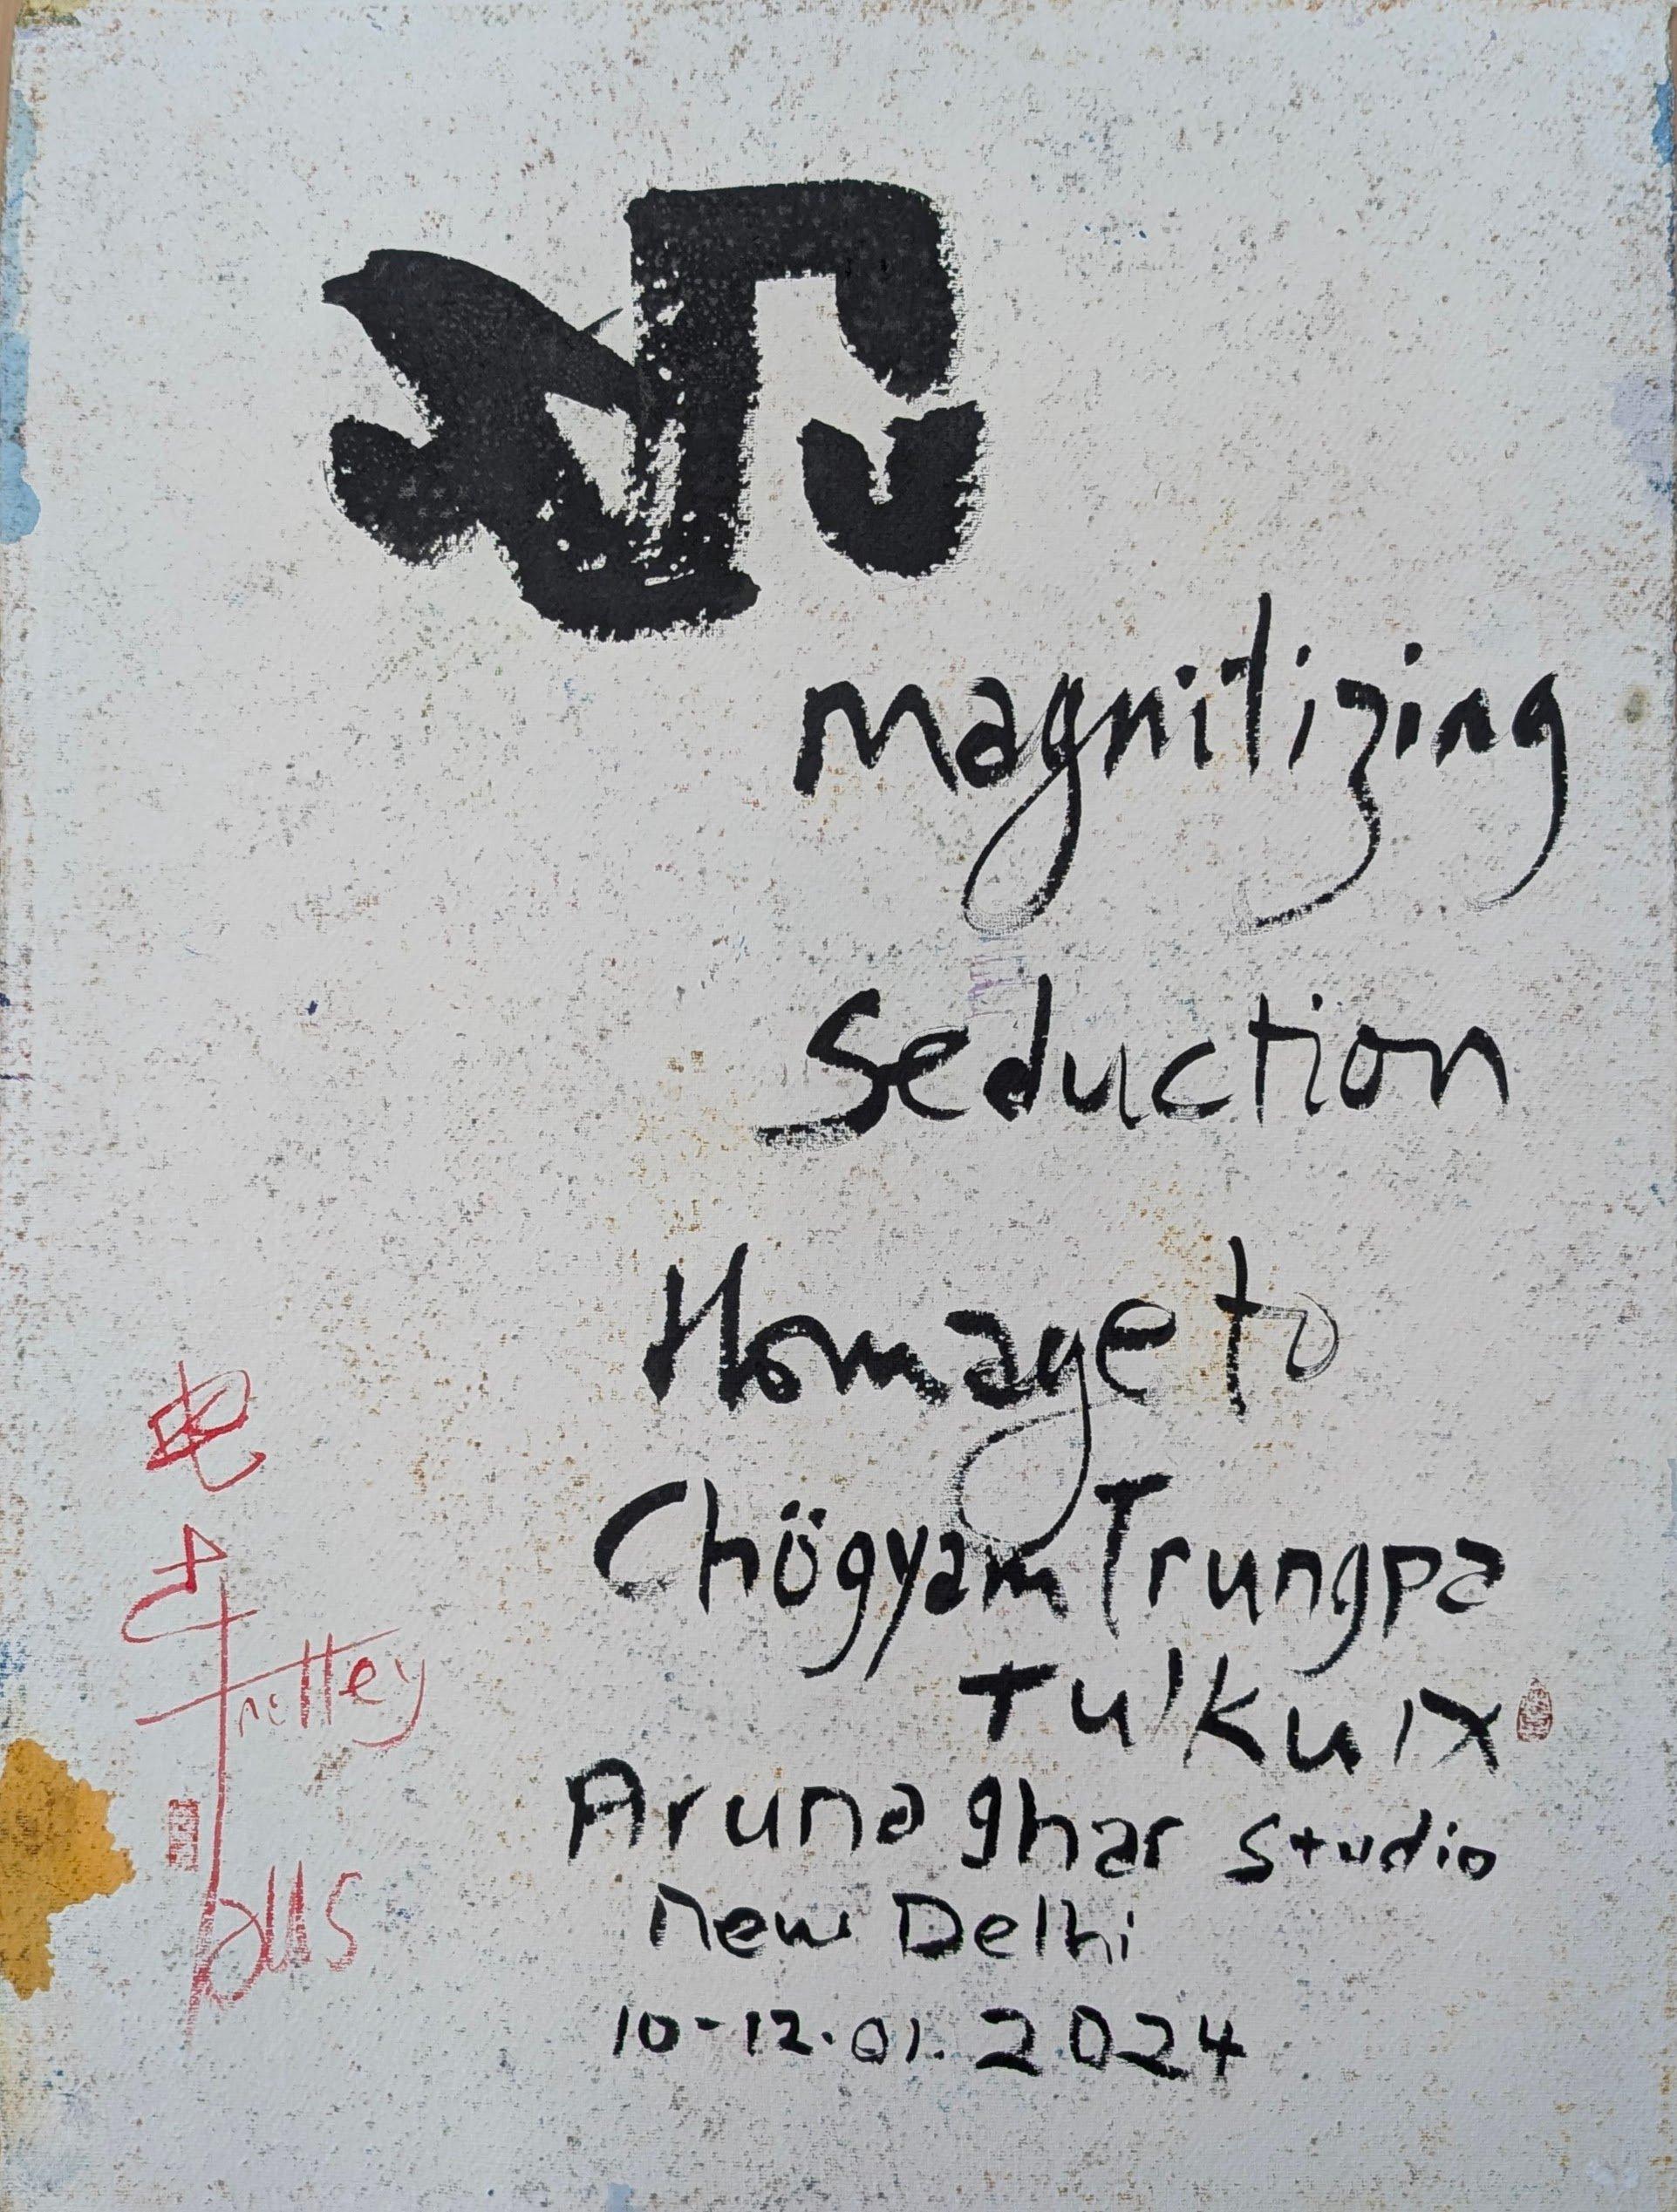 magnitizing
seduction
Homage to
Chögyam Trungpa
Tulku IX
Aruna ghar studio
New Delhi
10-12.01.2024